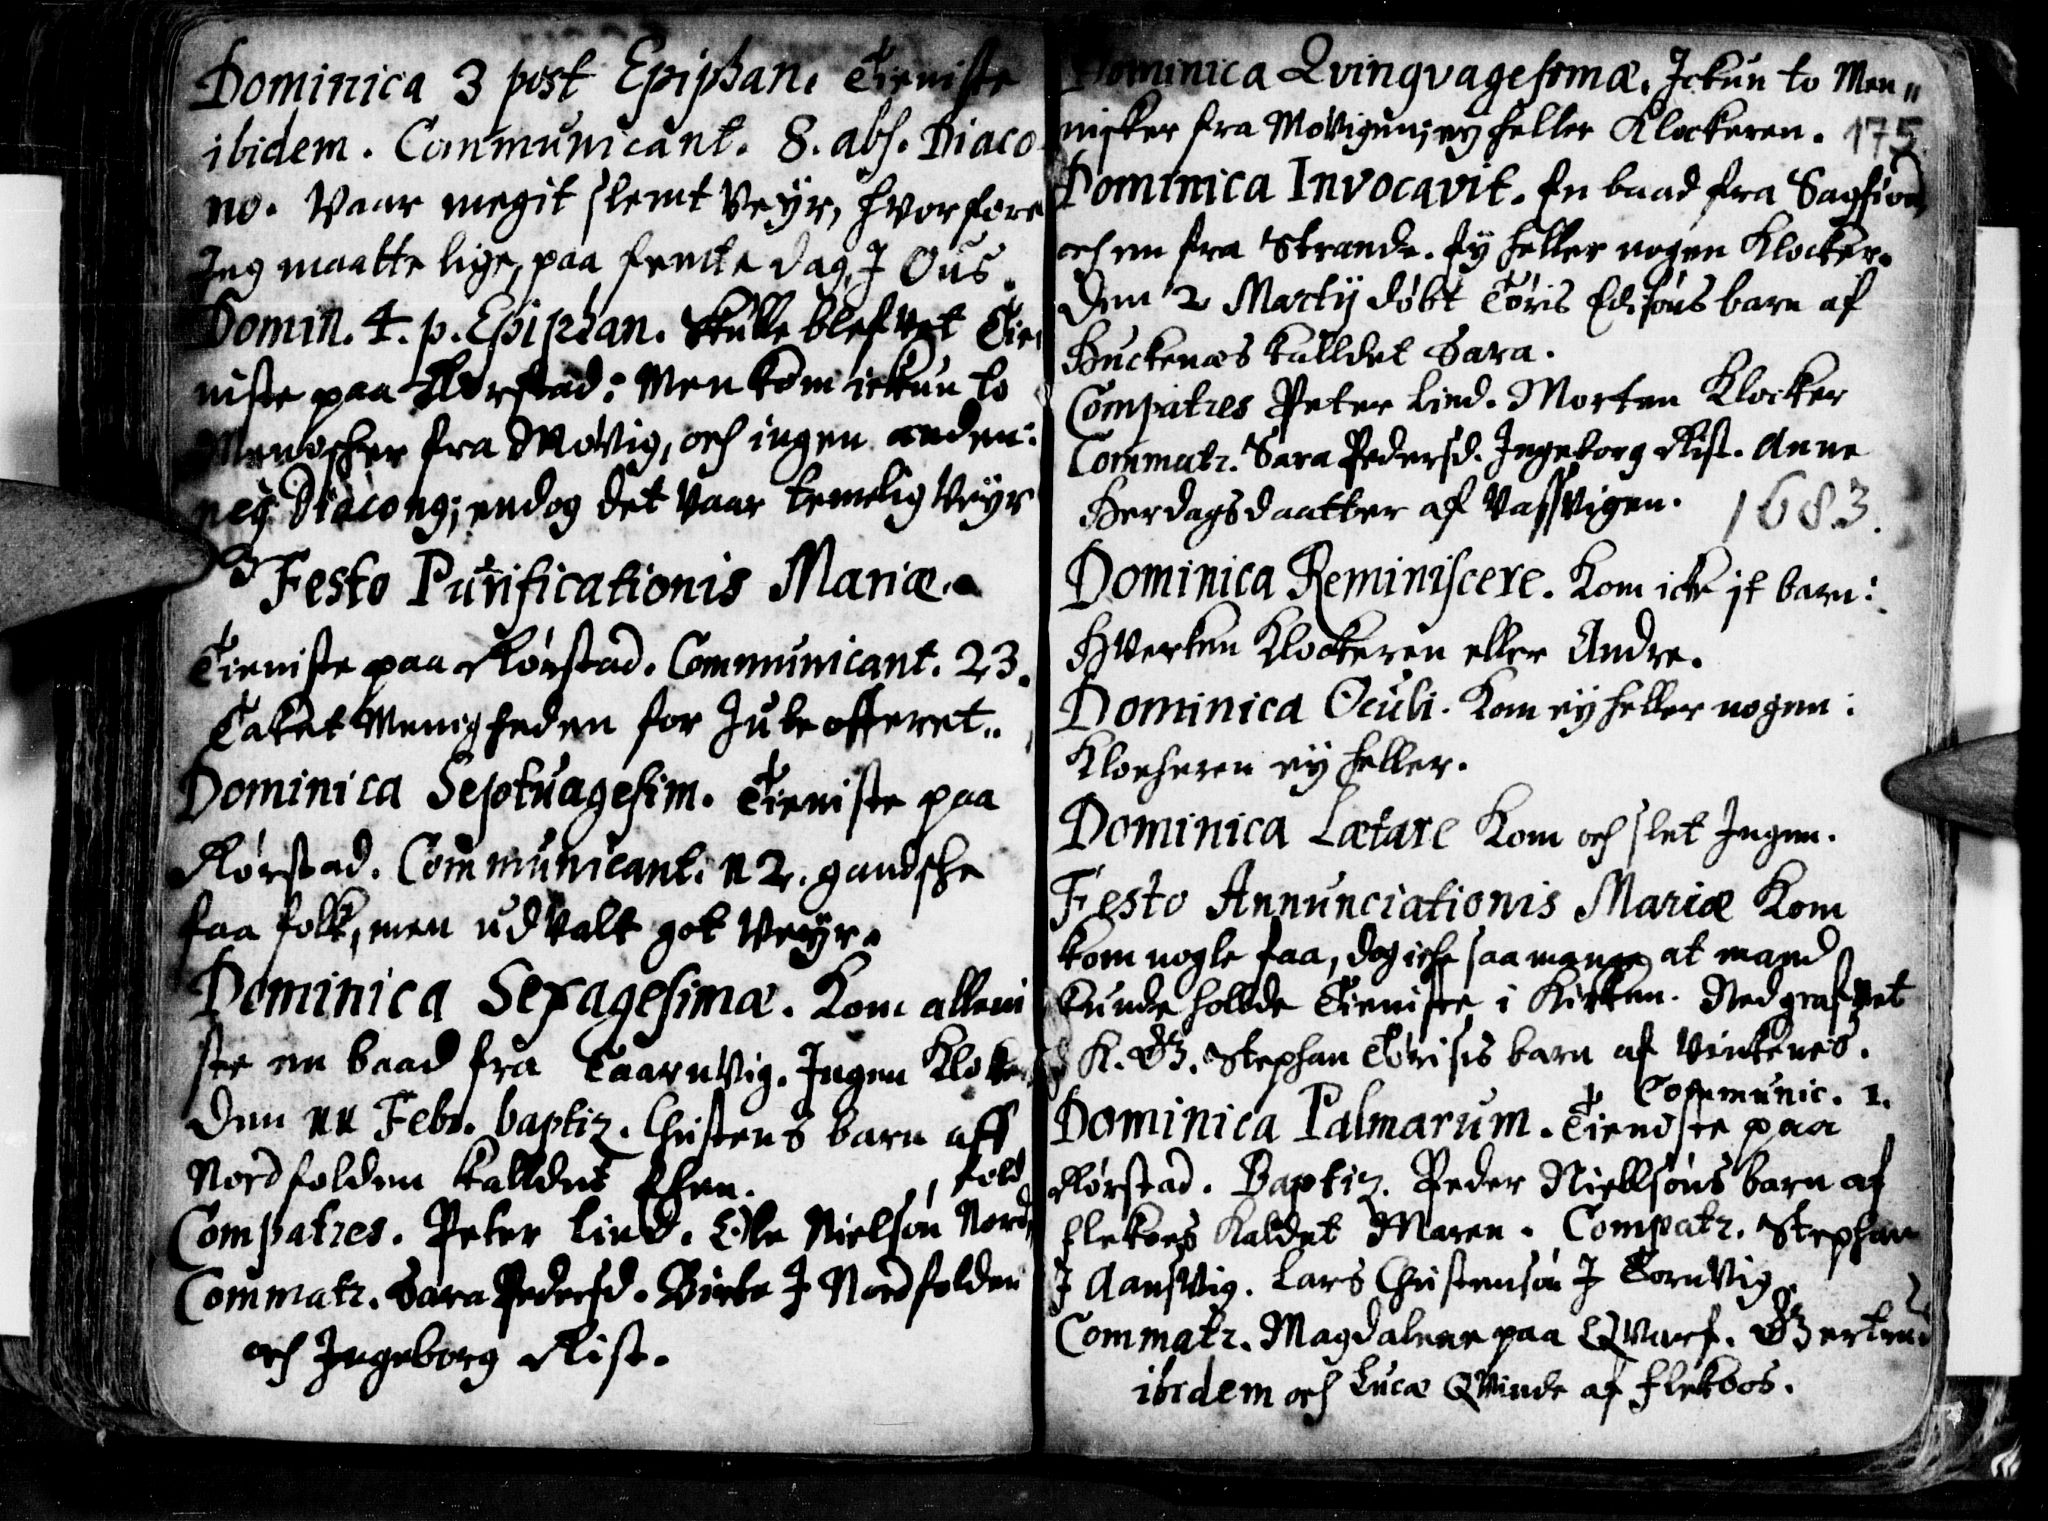 Dominica 3 post Epiphan. Tieniste
ibidem. Communicant. 8. abs. Diaco-
no. Vaar megit slemt Veÿr, hvorfore
Jeg maatte lige, paa femte dag, J Ous.
Domin. 4. p. Epiphan. Skulle blefvet Tie-
niste paa Rørstad: Men kom ickun to
Menischer fra Movig, och ingen anden:
neq Diaconq; endog det Vaar temelig Veÿr
Festo Purificationis Mariæ.
Tieniste paa Rørstad. Communicant. 23.
Taket Menigheden for Jule offeret.
Dominica Septuagesim. Tieniste paa
Rørstad. Communicant. 12. gandsche
faa folk, men udValt got Veÿr.
Dominica Sexagesimæ. Kom alleni
ste en baad fra TaarnVig. Ingen Klocker
Den 11 Febr. baptiz. Christens barn aff
Nordfolden kalldet Ellen.
fold
Compatres. Peter Lind. Ole Nielsøn Nord-
Commatr. Sara Pedersd. Birte J Nordfolden
och Ingeborg Rist.
Dominica Qvinqvagesimæ. Ickun to Men-
nisker fra Movigen; ey heller Klockeren. 175
Dominica Invocavit. En baad fra Sagfiord
och en fra Strande. Ey heller nogen Klocker.
Den 2 Martij døbt Tøris Edisøns barn af
Buckenæs kalldet Sara.
Compatres Peter Lind. Morten Klocker
Commatr. Sara Pedersd. Ingeborg Rist. Anne
Herdagsdaatter af Vassvigen. 1683.
Dominica Reminiscere. Kom icke it barn:
Hverken Klockeren eller Andre.
Dominica Oculi. Kom ey heller nogen:
Klocheren ey heller.
Dominica Lætare Kom och slet Ingen.
Festo Annunciationis Mariæ Kom
kom nogle faa, dog iche saa mange at mand
kunde hollde Tieniste i Kirken. Ned grafvet
K. B. Stephan Tørisis barn af Vintenes.
Communic. 1.
Dominica Palmarum. Tieniste paa
Rørstad. Baptiz. Peder Niellsøns barn af
Elekoes Kaldet Maren. Compatr. Stephan
J Aansvig. Lars Christensøn J Tornvig.
Commatr. Magdalene paa QVarf. Bertrud
ibidem och Lucæ QVinde af Elekoos.